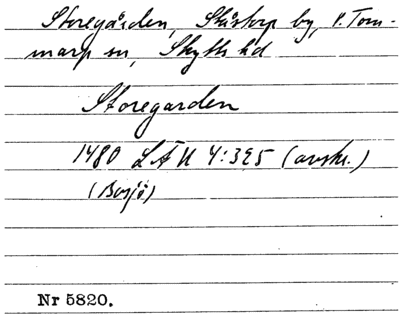 Storegården, Skåstorp by, V. Tom-
marp sn, Skytts hd
Storegarden
1480 LÄU 4:395 (avskr.)
(Bosjö)
Nr 5820.